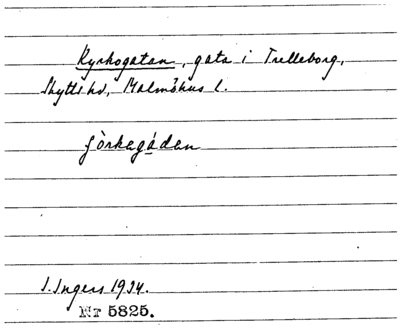 Kyrkogatan, gata i Trelleborg,
Skytts hd, Malmöhus l.
çòrkegáden
I. Ingers 1934.
Nr 5825.